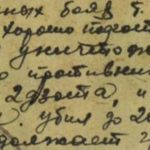 ных боях т.
хорошо подгот
уничтож
противник
2 дзота, и
убил до 20
должает